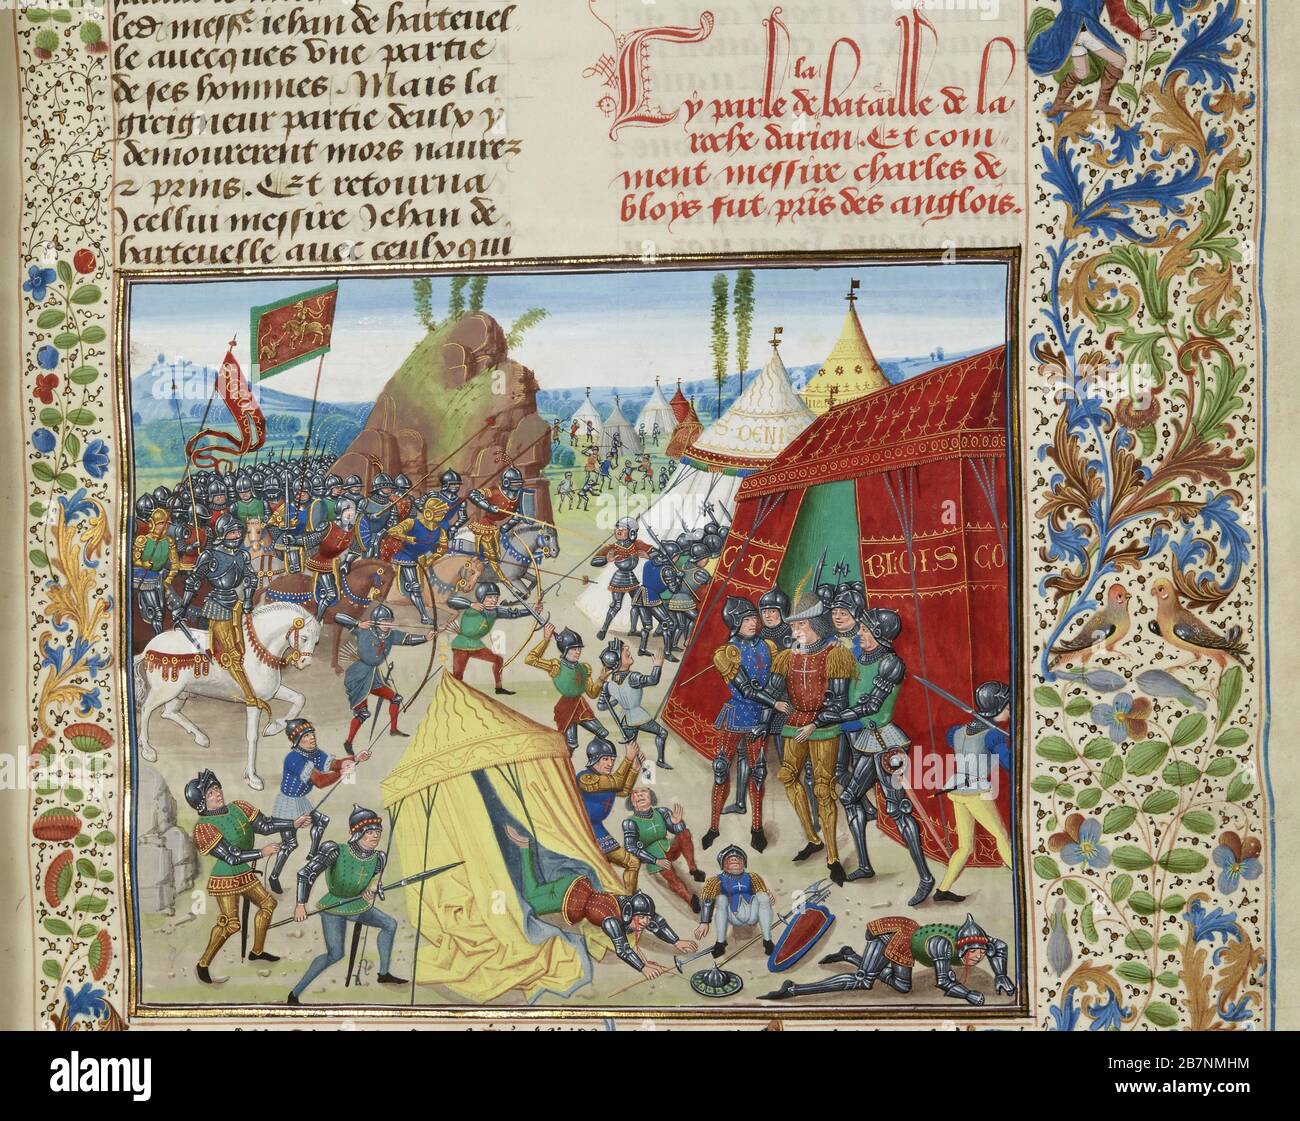 led. messe. iehan de harteuel
le auecques vne partie
de ses hommes. Mais la
greigneur partie deulx y
demourerent mors naurez
z prins. Et retourna
Jcellui messire Jehan de
harteuelle auec ceulx qui
Cy parle de la bataille de la
roche darien. Et com
ment messire charles de
bloys fut pris des anglois.
S DENIS
C DE
BLOIS CO
a
alamy
Image ID: 2B7NMHM
www.alamy.com